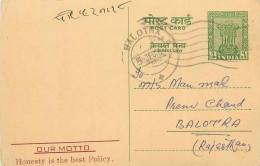 पोस्ट कार्ड
POST CARD
केवल पता
ADDRESS ONLY
BALOTRA
INDIA
M/s. Man mal
Prem Chand
BALOTRA
(Rajasthan)
OUR MOTTO
Honesty is the best Policy.